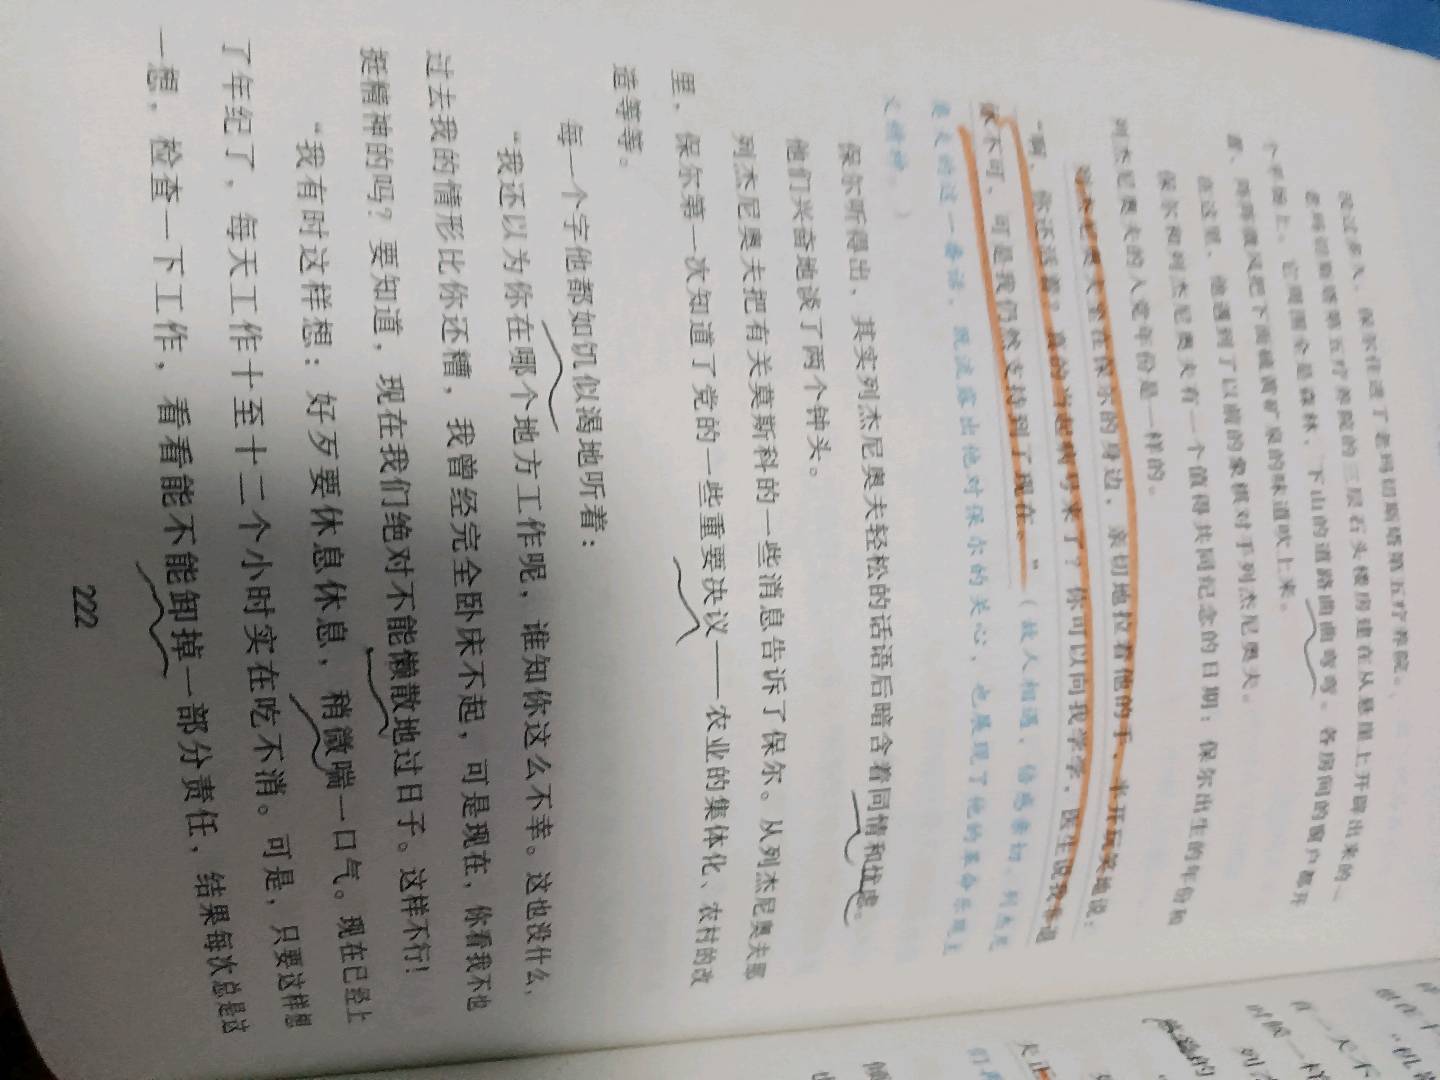 没过多久，保尔住进了老玛切斯塔第五疗养院。
老玛切斯塔第五疗养院的三层石头楼房建在从悬崖上开辟出来的一
个平场上。它周围全是森林，下山的道路曲曲弯弯。各房间的窗户都开
着，阵阵微风把下面硫磺矿泉的味道吹上来。
在这里，他遇到了以前的象棋对手列杰尼奥夫。
保尔和列杰尼奥夫有一个值得共同纪念的日期：保尔出生的年份和
列杰尼奥夫的入党年份是一样的。
列杰尼奥夫坐在保尔的身边，亲切地拉着他的手，半开玩笑地说：
“啊，你还活着？真的当起病号来了？你可以向我学学，医生说我非退
休不可，可是我仍然支持到了现在。”（故人相遇，倍感亲切，列杰尼
奥夫的这一番话，既流露出他对保尔的关心，也展现了他的革命乐观主
义精神。）
保尔听得出，其实列杰尼奥夫轻松的话语后暗含着同情和忧虑。
他们兴奋地谈了两个钟头。
列杰尼奥夫把有关莫斯科的一些消息告诉了保尔。从列杰尼奥夫那
里，保尔第一次知道了党的一些重要决议——农业的集体化、农村的改
造等等。
每一个字他都如饥似渴地听着：
“我还以为你在哪个地方工作呢，谁知你这么不幸。这也没什么，
过去我的情形比你还糟，我曾经完全卧床不起，可是现在，你看我不也
挺精神的吗？要知道，现在我们绝对不能懒散地过日子。这样不行！
“我有时这样想：好歹要休息休息，稍微喘一口气。现在已经上
了年纪了，每天工作十至十二个小时实在吃不消。可是，只要这样想
一想，检查一下工作，看看能不能卸掉一部分责任，结果每次总是这
222